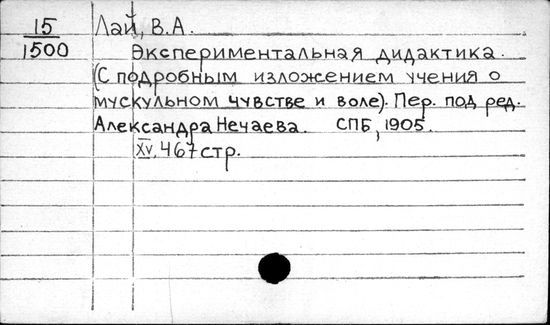 15 Лай, В.А.
1500 Экспериментальная дидактика.
(С подробным изложением учения о
мускульном чувстве и воле). Пер. под ред.
Александра Нечаева. СПБ, 1905.
XV, 467 стр.